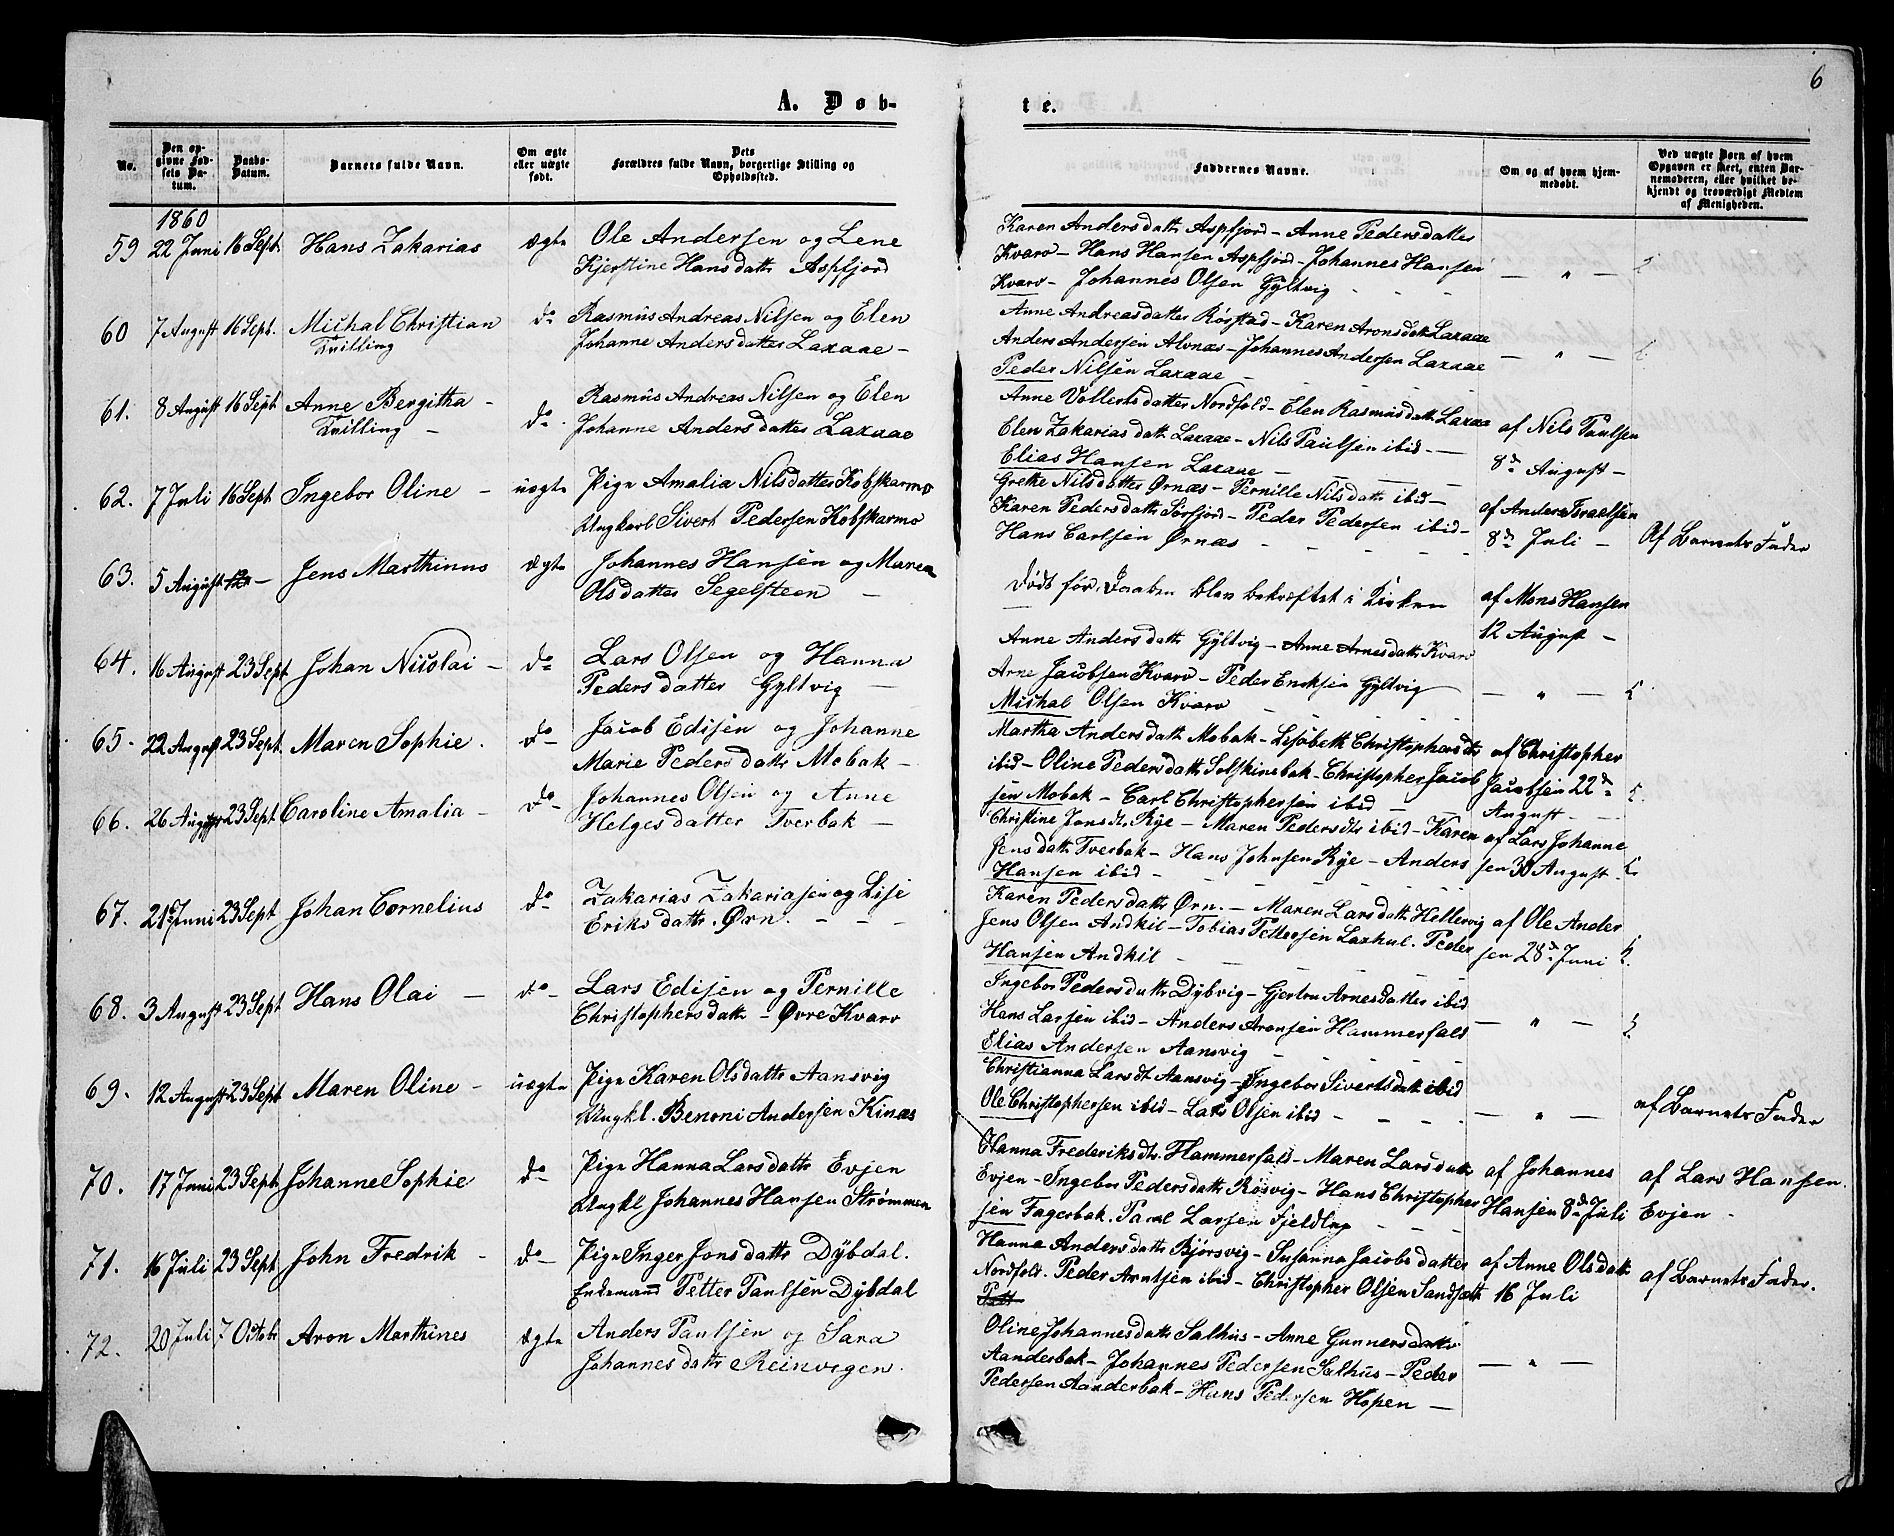 6
A. Døb-
te.
No.
Den op-
givne Fød-
sels Da-
tum.
Daabs-
Datum.
Barnets fulde Navn.
Om ægte
eller uægte
født.
Dets
Forældres fulde Navn, borgerlige Stilling og
Opholdssted.
Faddernes Navne.
Om og af hvem hjem-
medøbt.
Ved uægte Børn af hvem
Opgaven er skeet, enten Bar-
nemoderen, eller hvilket be-
kjendt og troværdigt Medlem
af Menigheden.
1860
59 22 Juni 16 Sept. Hans Zakarias ægte Ole Andersen og Lene
Kjerstine Hansdattr Aspfjord
Karen Andersdattr Aspfjord - Anne Pedersdatter
Kvarv - Hans Hansen Aspfjord - Johannes Hansen
Kvarv - Johannes Olsen Gyltvig — " —
60 7 August 16 Sept. Michal Christian do Rasmus Andreas Nilsen og Elen
Tvilling Johanne Andersdatter Laxaae -
Anne Andreasdatter Røstad - Karen Aronsdatt Laxaae
Anders Andersen Alvnæs - Johannes Andersen Laxaae
Peder Nilsen Laxaae — — " —
61. 8 August 16 Sept. Anne Bergitha - do. Rasmus Andreas Nilsen og Elen
Tvilling - Johanne Andersdatter Laxaae
Anne Vollertsdatter Nordfold - Elen Rasmusdattr Laxaa
Elen Zakariasdattr Laxaae - Nils Paulsen ibid -
Elias Hansen Laxaae -
af Nils Paulsen
8de August -
62. 7 Juli 16 Sept Ingebor Oline - uægte Pige Amalia Nilsdatter Kobskarmo
Ungkarl Sivert Pedersen Kobskarmo
Grethe Nilsdatter Ørnæs - Pernille Nilsdattr ibid -
Karen Pedersdattr Sørfjord - Peder Pedersen ibid -
Hans Carlsen Ørnæs - - -
af Anders Israelsen
8de Juli -
Af Barnets Fader
63. 5 August - Jens Marthinus ægte Johannes Hansen og Maren
Olsdatter Segelsteen -
Dødt før Daaben blev bekræftet i Kirken
af Mons Hansen
12 August -
64. 16 August 23 Sept Johan Nicolai - do Lars Olsen og Hanna
Pedersdatter Gyltvig -
Anne Andersdattr Gyltvig - Anne Arnesdattr Kvarv
Arne Jacobsen Kvarv - Peder Eriksen Gyltvig
Michal Olsen Kvarv — " —
65. 22 August 23 Sept. Maren Sophie. do Jacob Edisen og Johanne
Marie Pedersdattr Mobak -
Martha Andersdattr Mobak - Lisabeth Christophersdtr
ibid - Oline Pedersdattr Solskinsbak - Christopher Jacob
sen Mobak - Carl Christophersen ibid -
af Christopher
Jacobsen 22de
August -
66. 26 August 23 Sept. Caroline Amalia - do Johannes Olsen og Anne
Helgesdatter Tverbak -
Christine Jonsdtr Rye - Maren Pedersdtr ibid - Karen
Jensdattr Tverbak - Hans Johnsen Rye - Anders
Hansen ibid -
af Lars Johanne
sen 30 August -
67. 21de Juni 23 Sept Johan Cornelius do Zakarias Zakariasen og Lise
Eriksdattr. Ørn. - -
Karen Pedersdattr Ørn. - Maren Larsdattr Hellervig
Jens Olsen Andkil - Tobias Pettersen Laxhul. Peder
Hansen Andkil -
af Ole Ander
sen 28de Juni
68. 3 August 23 Sept Hans Olai - do Lars Edisen og Pernille
Christophersdattr - Øvre Kvarv
Ingebor Pedersdattr Dybvig - Gjertru Arnesdatter ibid
Hans Larsen ibid - Anders Aronsen Hammerfald
Elias Andersen Aansvig — " —
69. 12 August 23 Sept Maren Oline - uægte Pige Karen Olsdattr Aansvig
Ungkl. Benoni Andersen Kinæs
Christianna Larsdt. Aansvig - Ingebor Sivertsdatt ibid
Ole Christophersen ibid - Lars Olsen ibid - — " —
af Barnets Fader
70. 17 Juni 23 Sept Johanne Sophie do Pige Hanna Larsdattr Evjen
Ungkl Johannes Hansen Strømmen
Hanna Frederiksdtr. Hammerfald - Maren Larsdatt
Evjen - Ingebor Pedersdattr Røsvig - Hans Christopher
sen Fagerbak. Paul Larsen Fjeldlap
af Johannes
Hansen 8de Juli
af Lars Hansen
Evjen -
71. 16 Juli 23 Sept John Fredrik - do Pige Inger Jonsdattr Dybdal.
Enkemand Petter Paulsen Dybdal
Hanna Andersdattr Bjørsvig - Susanna Jacobsdatter
Nordfold. Peder Arntsen ibid - Christopher Olsen Sandsæth
Pett
af Anne Olsdatt
16 Juli
af Barnets Fader.
72. 20 Juli 7 Octobr Aron Marthines ægte Anders Paulsen og Sara
Johannesdattr Reinvegen.
Oline Johannesdattr Salhus - Anne Gunnersdattr
Aanderbak - Johannes Pedersen Salhus - Peder
Pedersen Aanderbak - Hans Pedersen Hopen - — " —